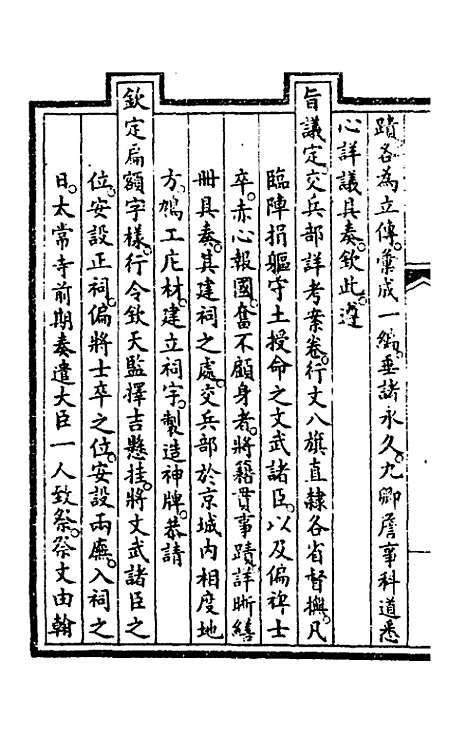 蹟各為立傳彙成一編垂諸永久九卿詹事科道悉
心詳議具奏欽此遵
旨議定交兵部詳考案卷行文八旗直隸各省督撫凡
臨陣捐軀守土授命之文武諸臣以及偏裨士
卒赤心報國奮不顧身者將籍貫事蹟詳晰繕
冊具奏其建祠之處交兵部於京城內相度地
方鳩工庀材建立祠宇製造神牌恭請
欽定扁額字樣行令欽天監擇吉懸挂將文武諸臣之
位安設正祠偏將士卒之位安設兩廡入祠之
日太常寺前期奏遣大臣一人致祭祭文由翰